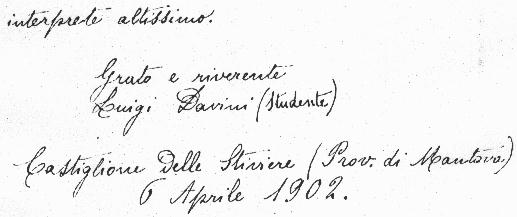 interprete altissimo.
Grato e riverente
Luigi Davini (studente)
Castiglione delle Stiviere (Prov. di Mantova)
6 Aprile 1902.